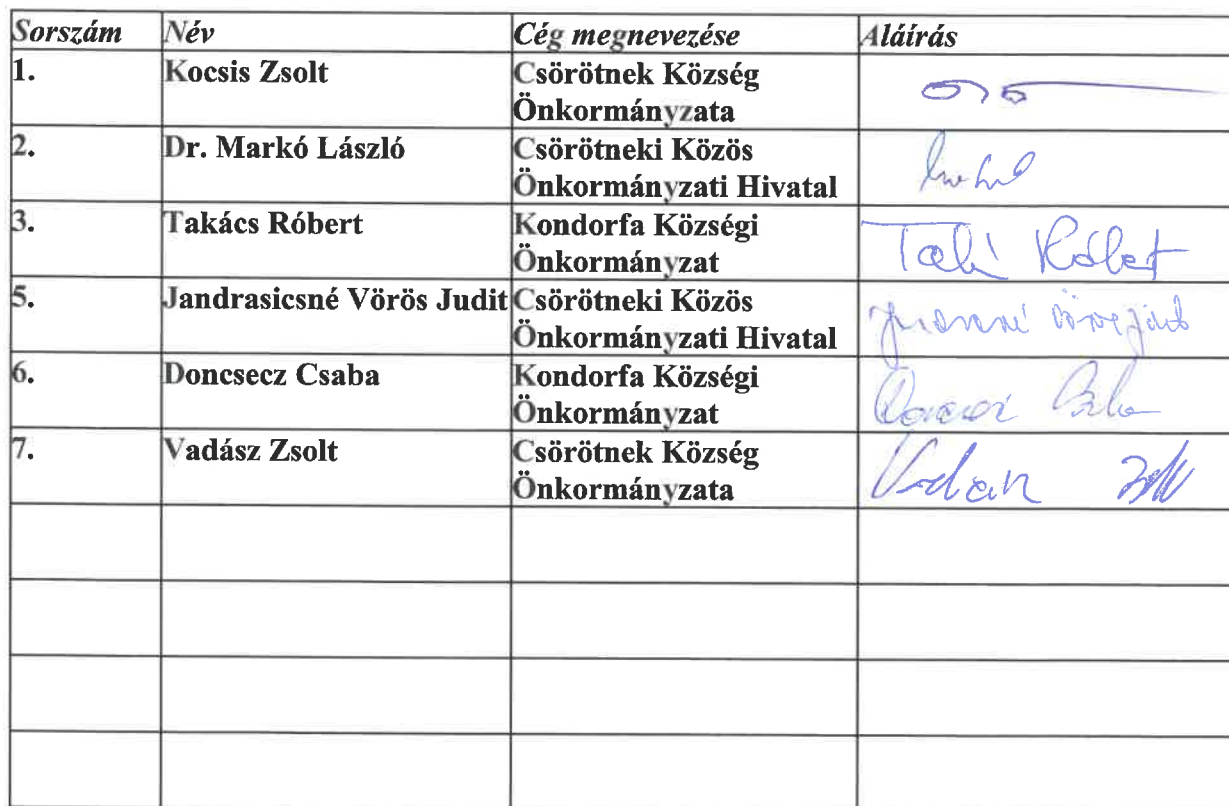 Sorszám Név Cég megnevezése Aláírás
1. Kocsis Zsolt Csörötnek Község
Önkormányzata
2. Dr. Markó László Csörötneki Közös
Önkormányzati Hivatal
3. Takács Róbert Kondorfa Községi
Önkormányzat Róbert
5. Jandrasicsné Vörös Judit Csörötneki Közös
Önkormányzati Hivatal
6. Doncsecz Csaba Kondorfa Községi
Önkormányzat
7. Vadász Zsolt Csörötnek Község
Önkormányzata